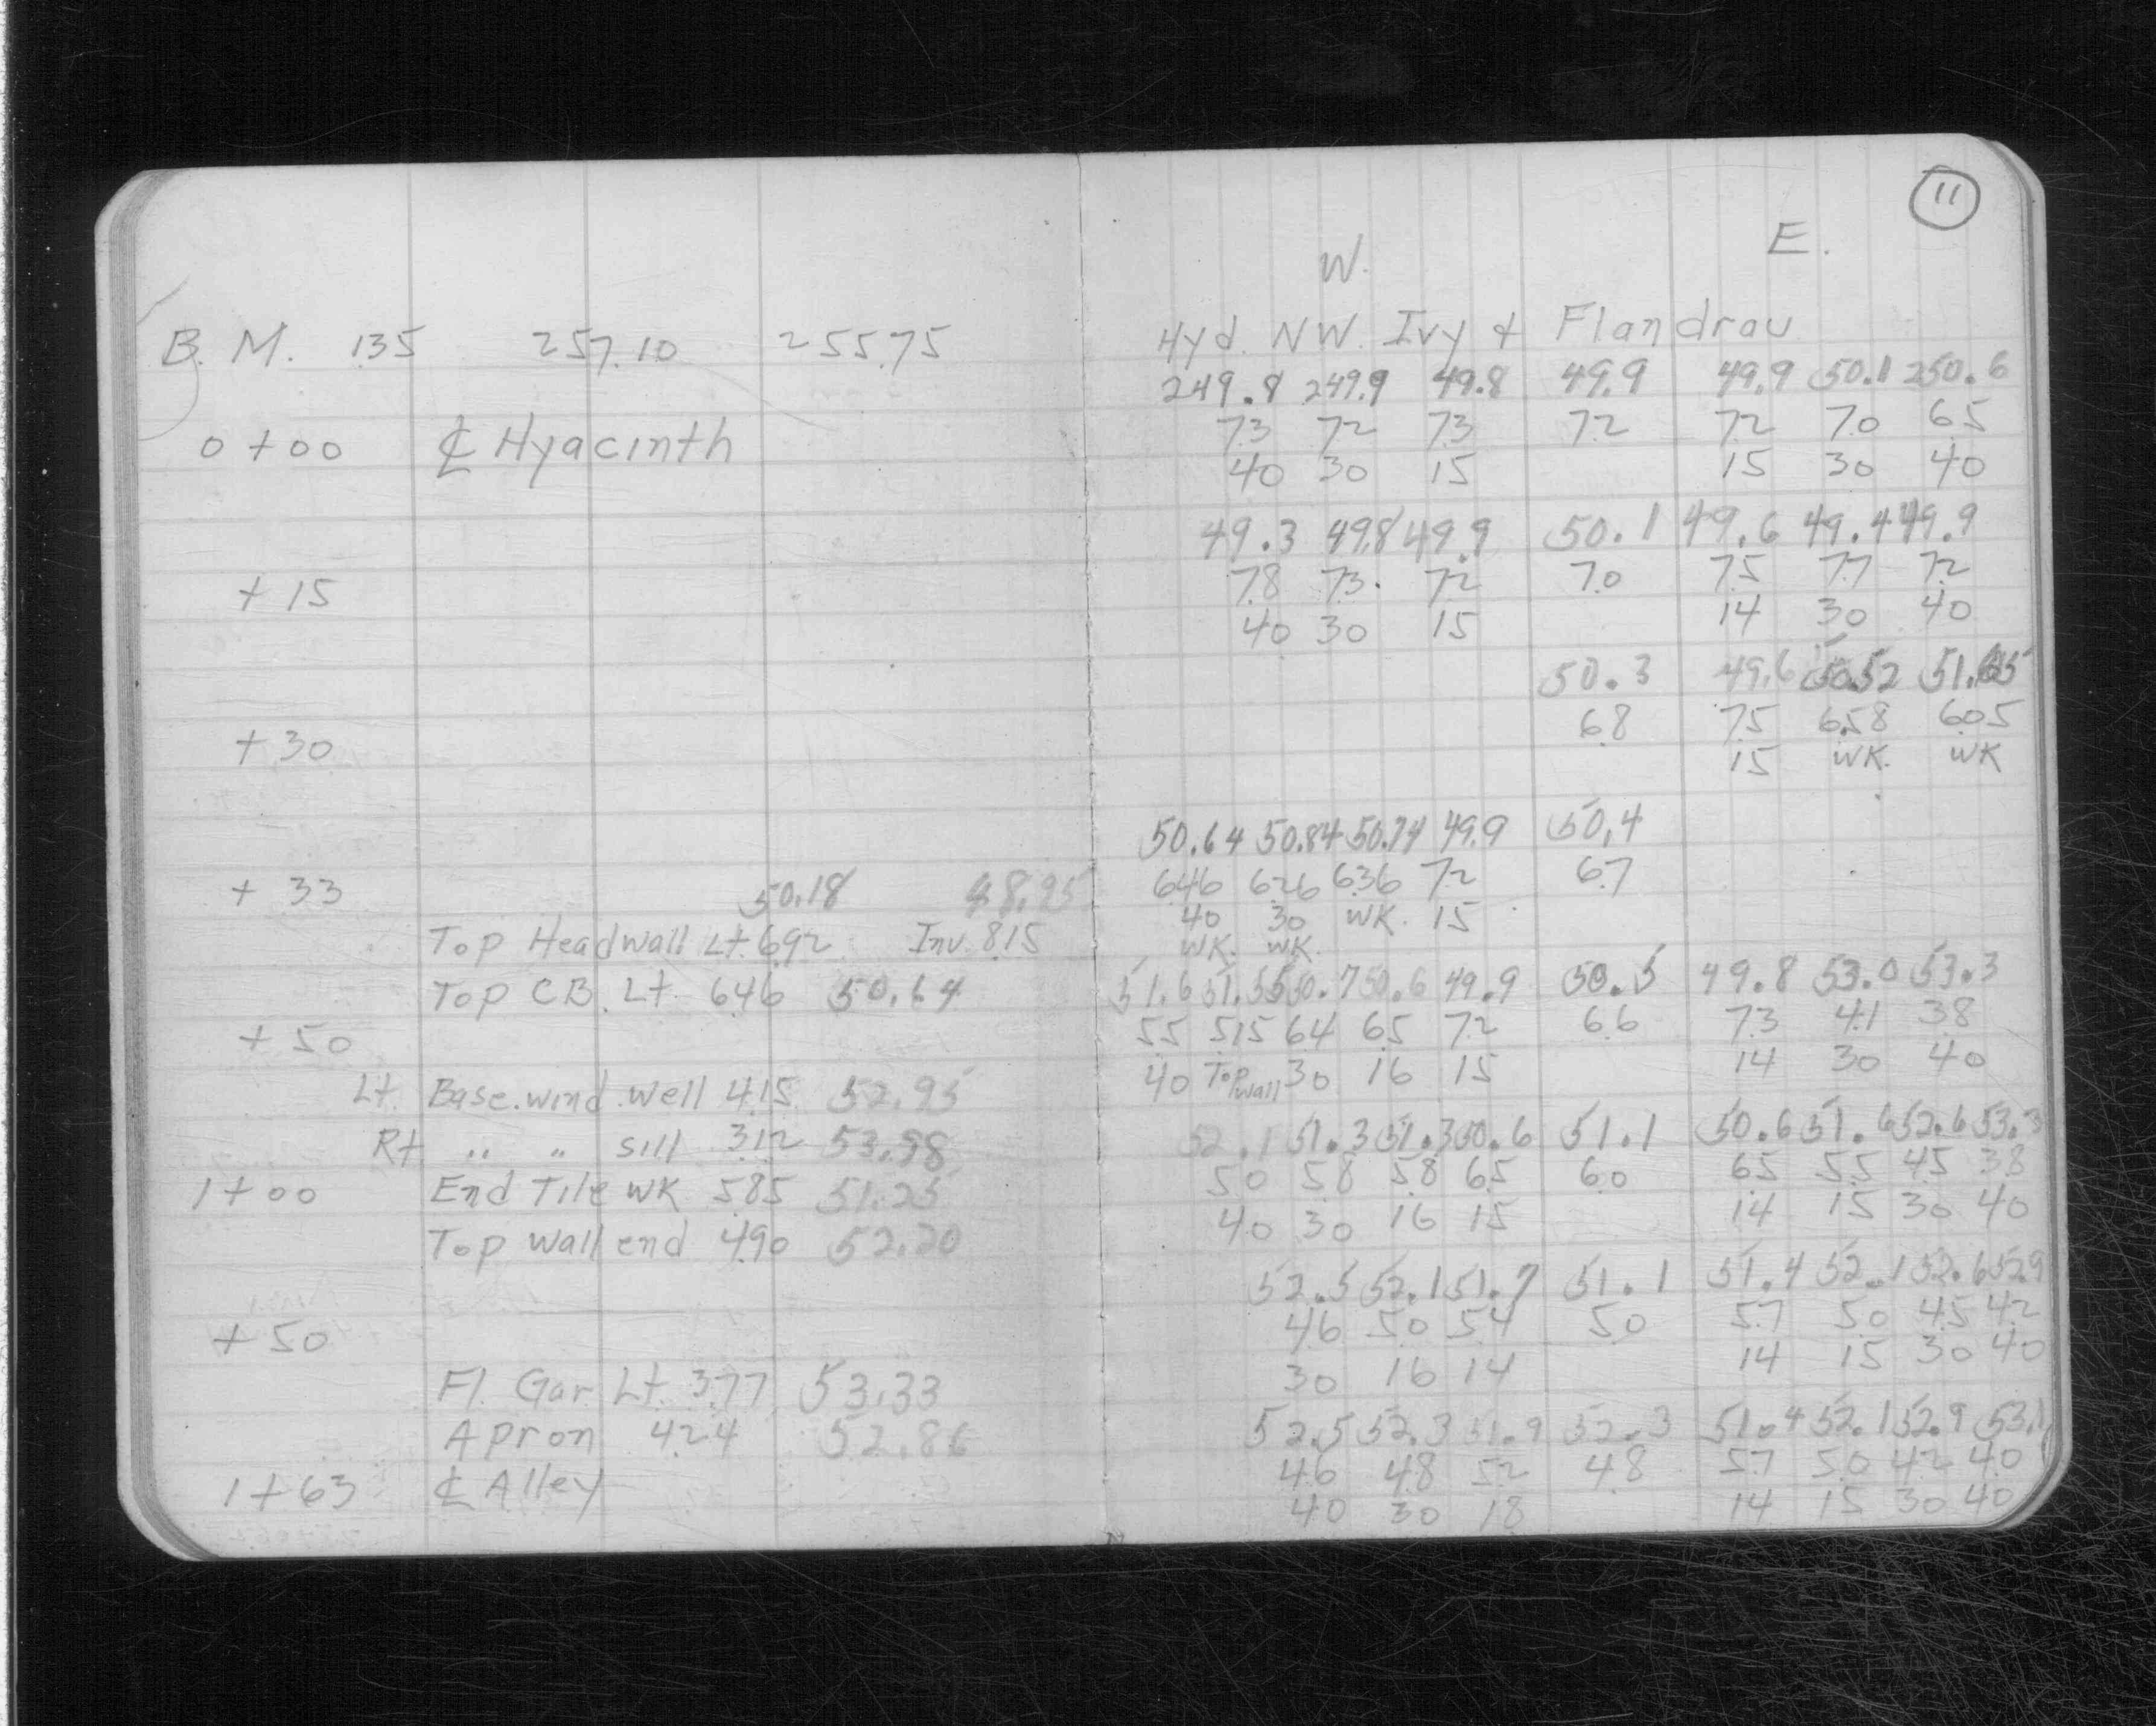 11
W. E.
B. M. 1.35 257.10 255.75 Hyd. NW. Ivy & Flandrau
249.8 249.9 49.8 49.9 49.9 50.1 250.6
7.3 7.2 7.3 7.2 7.2 7.0 6.5
0+00 ℄ Hyacinth 40 30 15 15 30 40
49.3 49.8 49.9 50.1 49.6 49.4 49.9
7.8 7.3 7.2 7.0 7.5 7.7 7.2
+15 40 30 15 14 30 40
50.3 49.6 50.52 51.05
6.8 7.5 6.58 6.05
+30 15 WK. WK
50.64 50.84 50.74 49.9 50.4
+33 50.18 48.95 6.46 6.26 6.36 7.2 6.7
40 30 WK. 15
Top Headwall Lt. 6.92 Inv. 8.15 WK. WK.
Top CB. Lt. 6.46 50.64 51.6 51.55 50.7 50.6 49.9 50.5 49.8 53.0 53.3
+50 5.5 5.15 6.4 6.5 7.2 6.6 7.3 4.1 3.8
40 Top Wall 30 16 15 14 30 40
Lt. Base. wind. well 4.15 52.95
Rt " " sill 3.12 53.98 52.1 51.3 51.3 50.6 51.1 50.6 51.6 52.6 53.3
1+00 End Tile WK 5.85 51.25 5.0 5.8 5.8 6.5 6.0 6.5 5.5 4.5 3.8
Top wall end 4.90 52.20 40 30 16 15 14 15 30 40
52.5 52.1 51.7 51.1 51.4 52.1 52.6 52.9
+50 4.6 5.0 5.4 5.0 5.7 5.0 4.5 4.2
Fl. Gar. Lt. 3.77 53.33 30 16 14 14 15 30 40
Apron 4.24 52.86 52.5 52.3 51.9 52.3 51.4 52.1 52.9 53.1
1+63 ℄ Alley 4.6 4.8 5.2 4.8 5.7 5.0 4.2 4.0
40 30 18 14 15 30 40